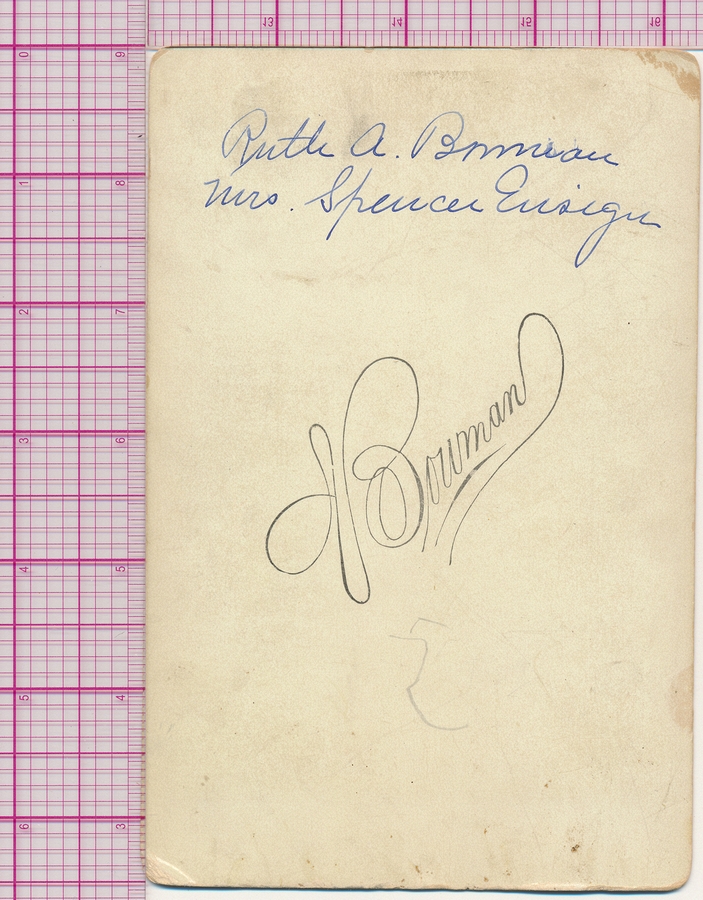 13 14 15 16
0 9
Ruth A. Bonneau
1 8
Mrs. Spencer Ensign
2 7
Bowman
3 6
4 5
5 4
6 3